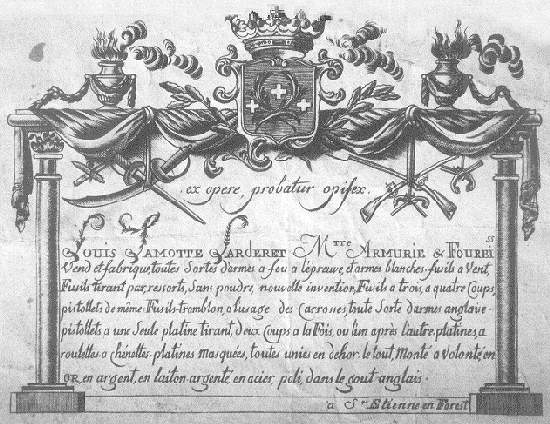 ex opere probatur opifex.
Louis Lamotte Larderet Mtre Armurie & Fourbiss
Vend et fabrique, toutes Sortes d'armes a feu a l'epreuve, d'armes blanches - fusils a Vent,
Fusils tirant par ressorts, Sans poudre, nouvelle invention, Fusils a trois, a quatre Coups,
pistollets de même - Fusils-tromblon, a l'usage des Carosses, toute Sorte d'armes anglaise -
pistollets a une Seule platine tirant, deux Coups a la Fois, ou l'un après l'autre, platines, a
roulettes a chenettes - platines masquées, toutes unies en dehor. le tout, Monté a Volonté, en
or, en argent, en laiton argenté, en acier poli, dans le gout anglais.
a St. Etienne en Forest